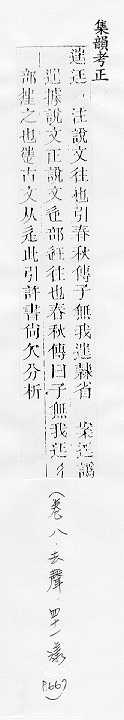 集韻考正
迋 注說文往也引春秋傳子無我隸省 案迋譌
據說文正說文辵部迋往也春秋傳曰子無我迋彳
部之也古文从辵此引許書尚欠分析
(卷八.去聲.四十一漾)
P.667